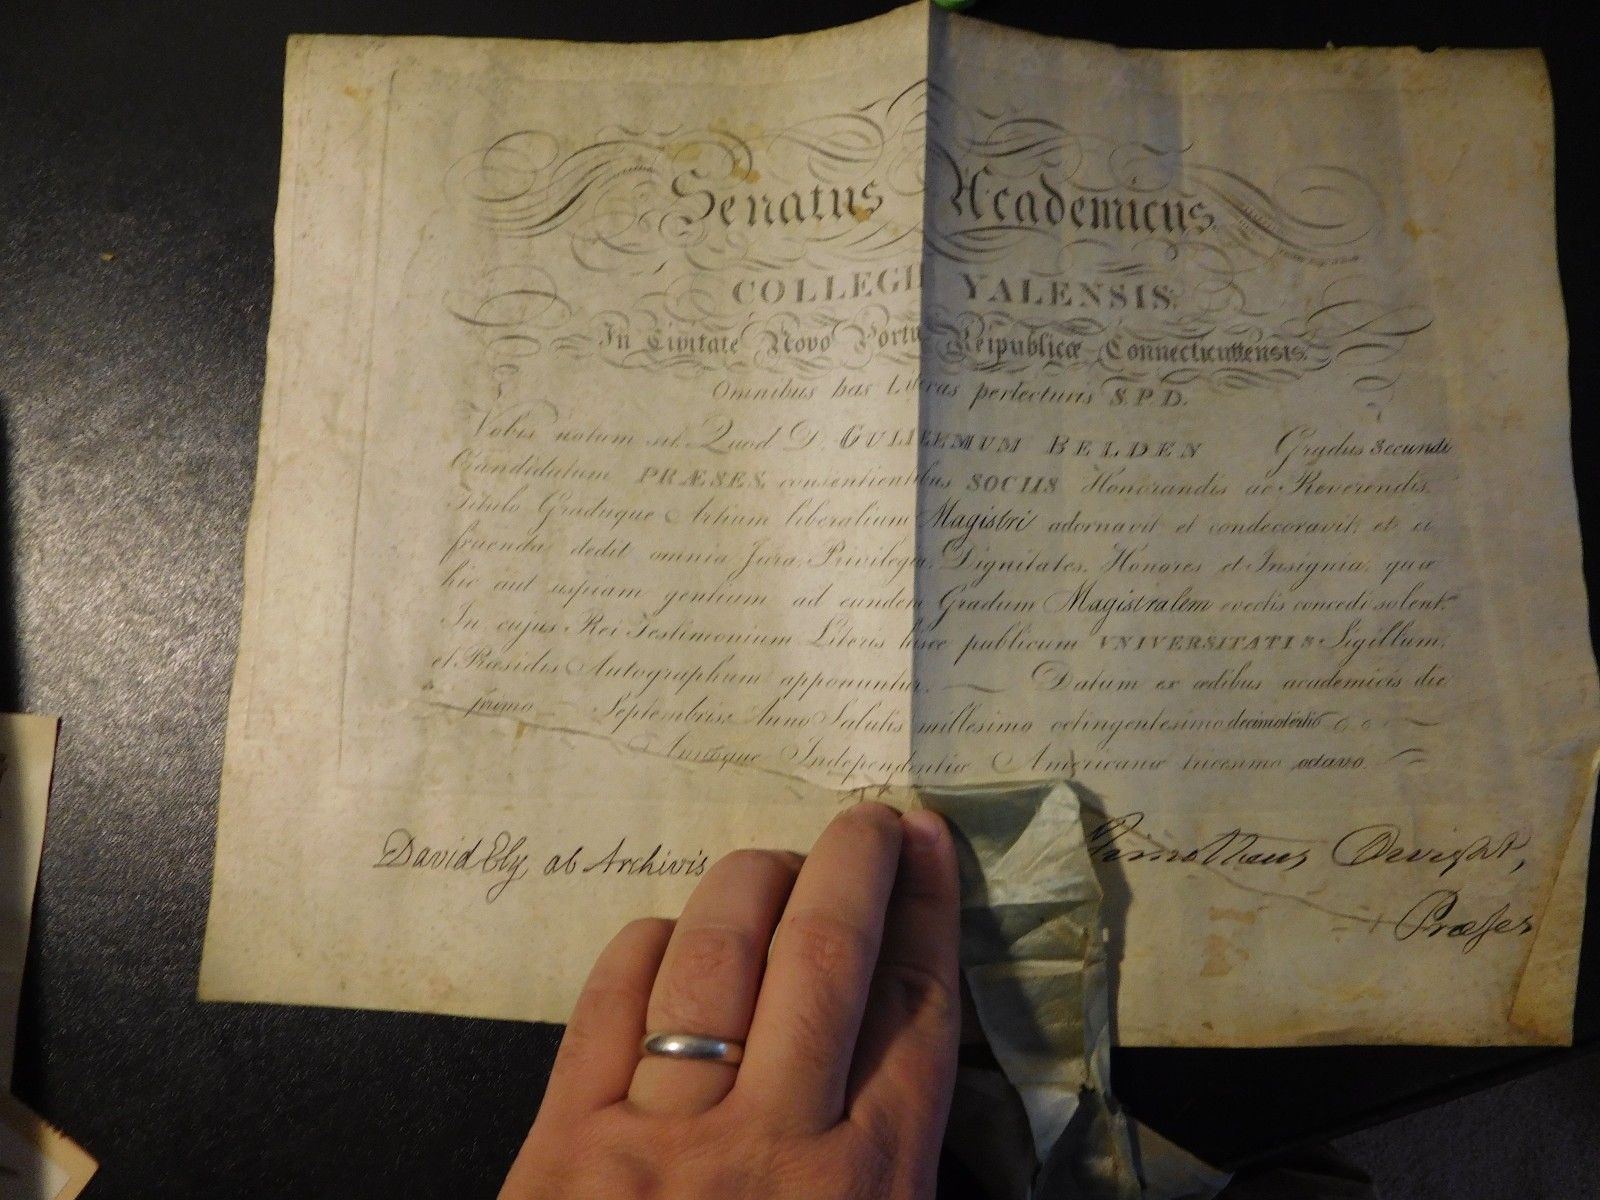 Senatus Academicus
COLLEGII YALENSIS.
In Civitate Novo Portu Reipublicæ Connecticuttensis.
Omnibus has Literas perlecturis S.P.D.
Vobis notum sit Quod D. GULIELMUM BELDEN Gradus Secundi
Candidatum PRÆSES, consentientibus SOCIIS Honorandis ac Reverendis,
Titulo Graduque Artium liberalium Magistri adornavit et condecoravit; et ei
fruenda dedit omnia Jura, Privilegia, Dignitates, Honores et Insignia, quæ
hic aut uspiam gentium ad eundem Gradum Magistralem evectis concedi solent.
In cujus Rei Testimonium Literis hisce publicum VNIVERSITATIS Sigillum,
et Præsidis Autographum apponuntur. Datum ex ædibus academicis die
primo Septembris, Anno Salutis millesimo octingentesimo decimotertio
Annoque Independentiæ Americanæ tricesimo octavo.
David Ely, ab Archivis
Timotheus Dwight,
Præses